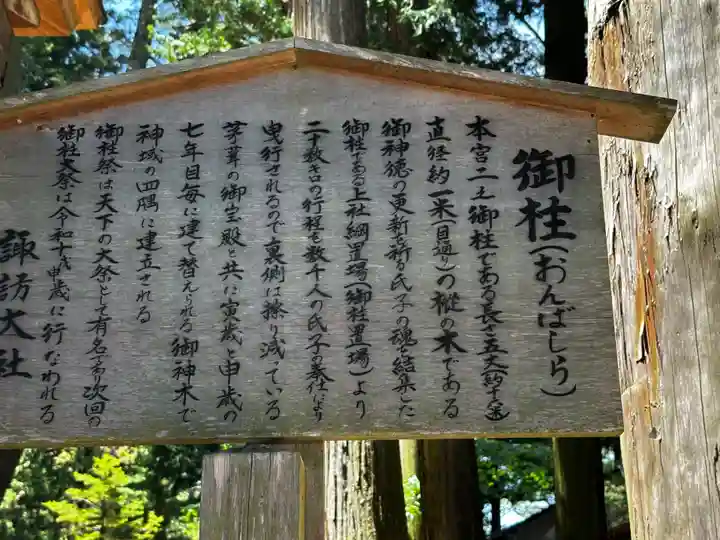 御柱(おんばしら)
本宮二之御柱である長さ五丈(約十七米)
直径約一米(目通り)の樅の木である
御神徳の更新を祈る氏子の魂を結集した
御柱である上社綱置場(御柱置場)より
二十数キロの行程を数千人の氏子の奉仕により
曳行されるので裏側は擦り減っている
茅葺の御宝殿と共に寅歳と申歳の
七年目毎に建て替えられる御神木で
神域の四隅に建立される
御柱祭は天下の大祭として有名であり次回の
御柱大祭は令和十年申歳に行なわれる
諏訪大社